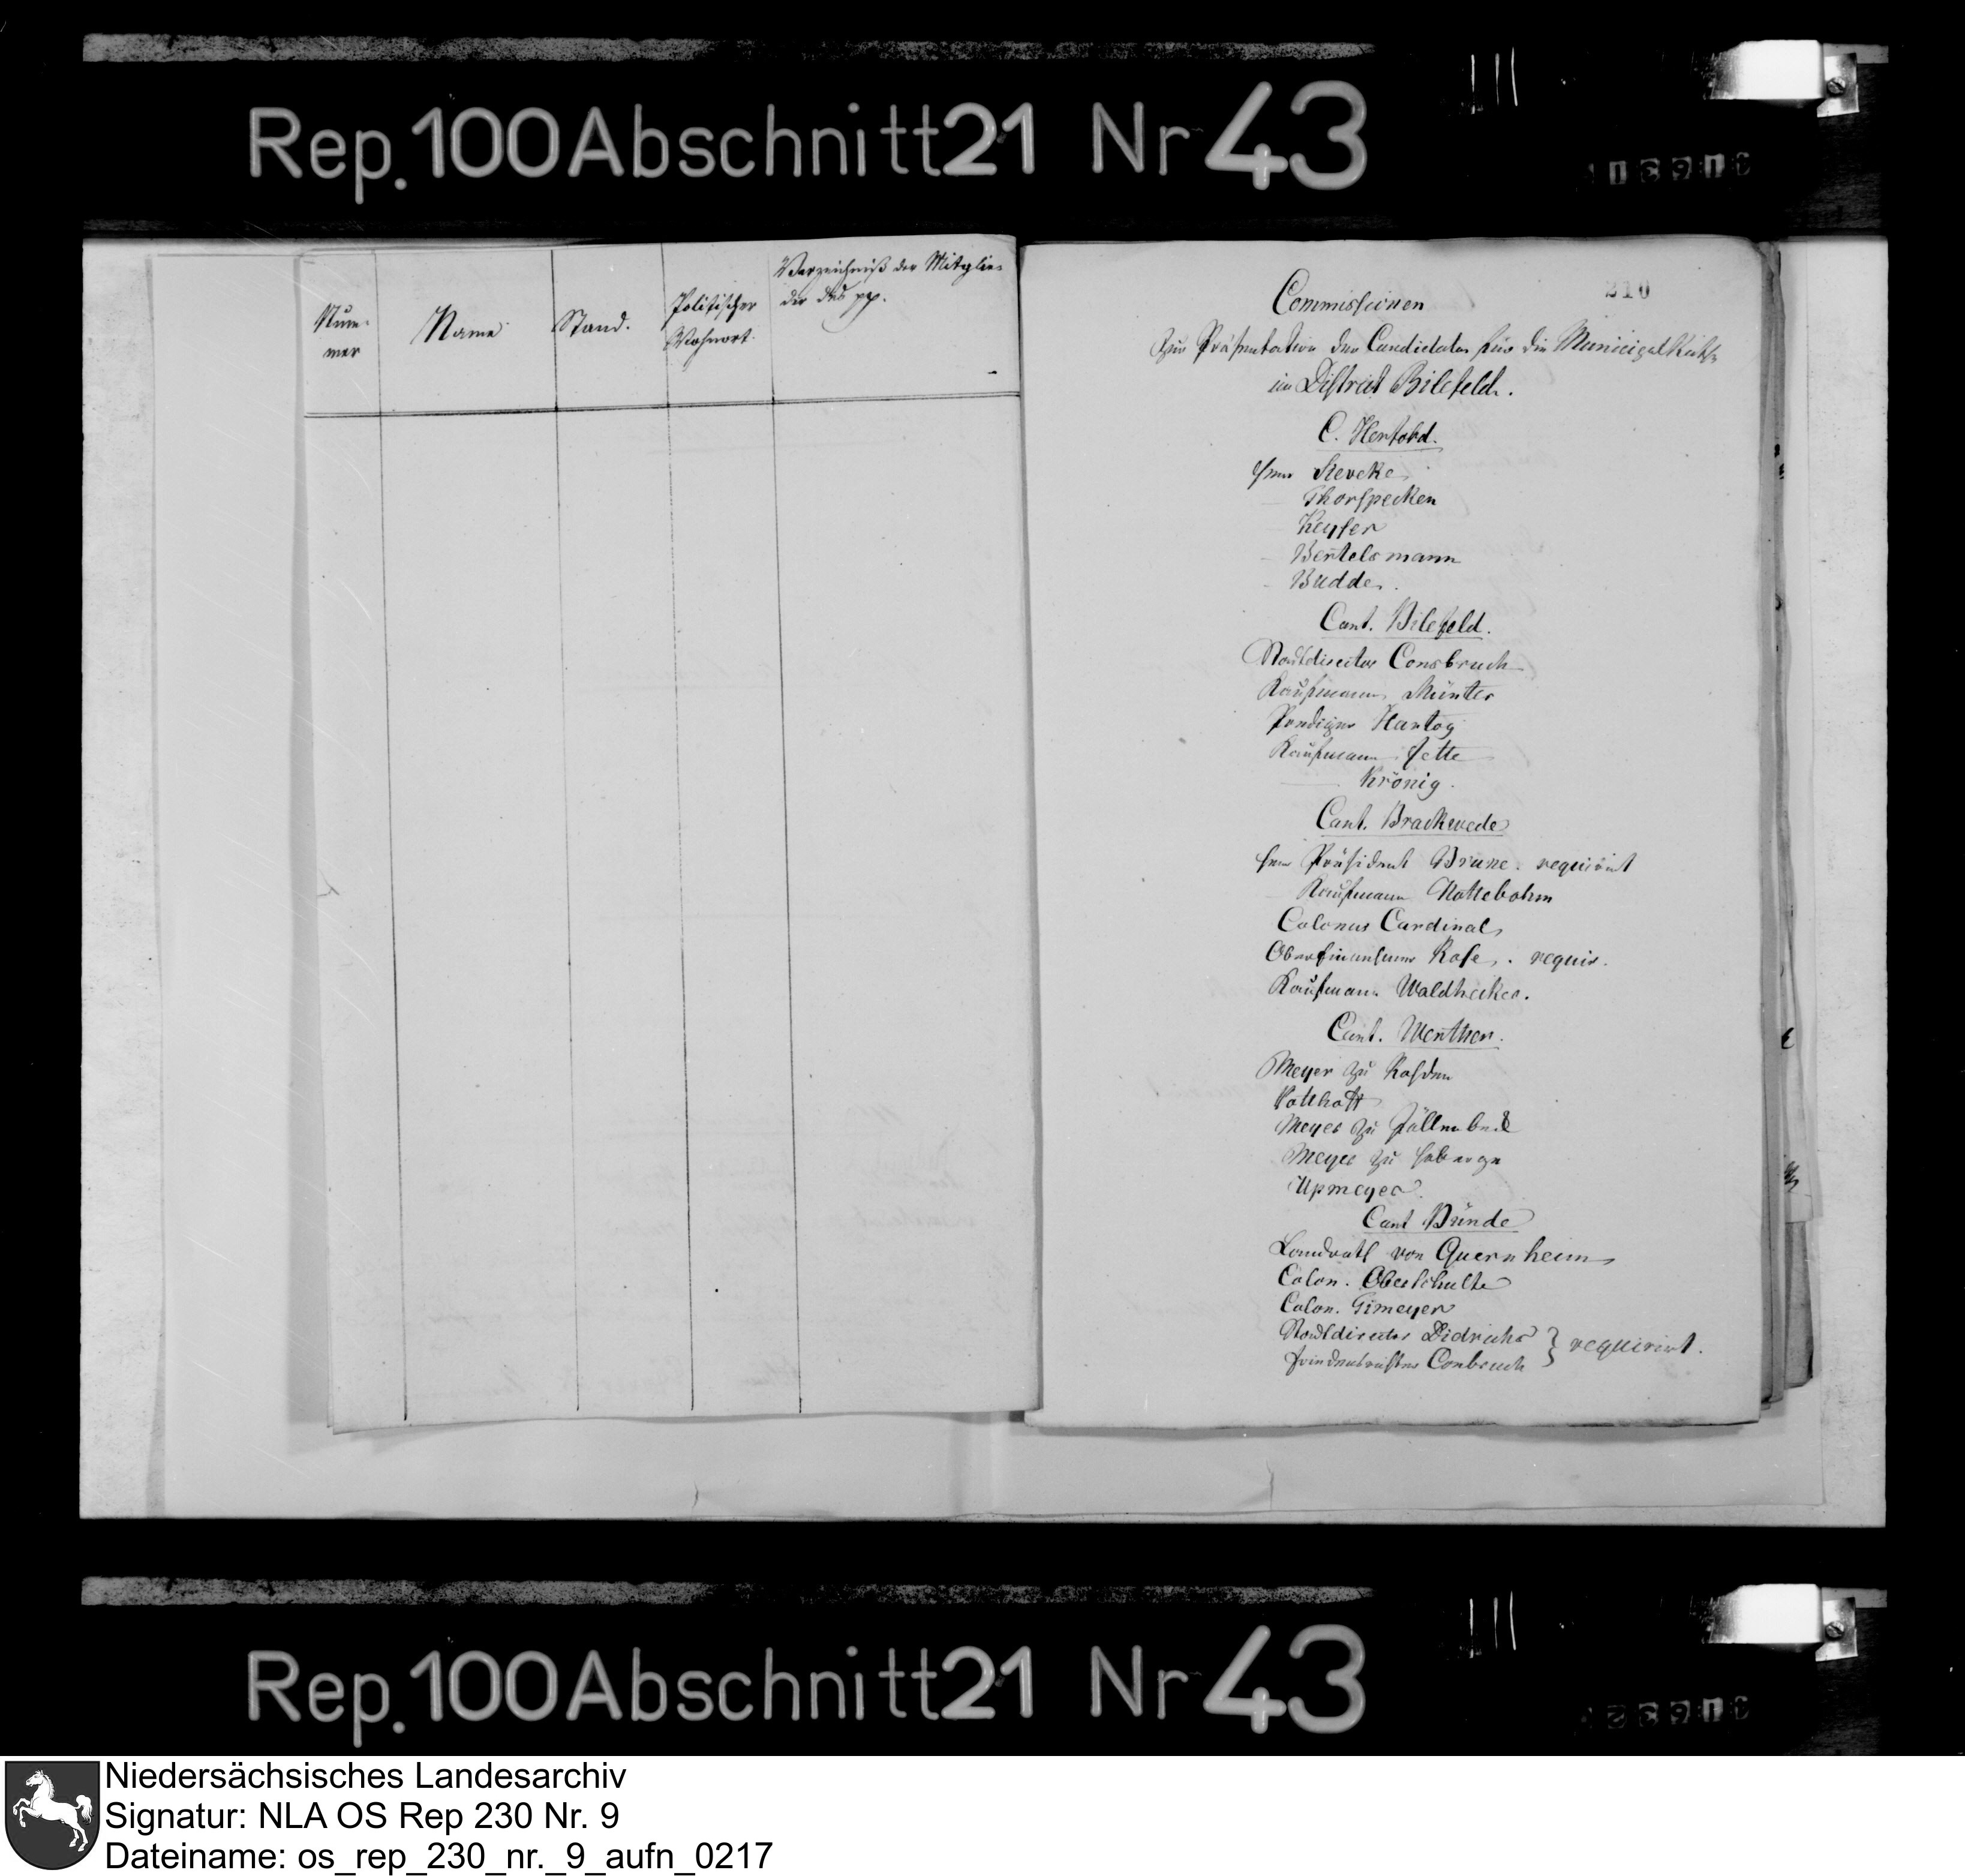 Rep.100Abschnitt21 Nr 43
Num-
mer
Name
Stand.
Politischer
Wohnort.
Verzeichniß der Mitglie-
der des pp.
210
Commissionen
zur Präsentation der Candidaten für die MunicipalRäthe
im District Bilefeld.
C. Herford.
Herr
Thorspecken
Keyser
Bertelsmann
Budde.
Cant. Bilefeld.
Stadtdirector Consbruch
Kaufmann Münter
Prediger Hartog
Kaufmann Fette
Krönig.
Cant. Brackwede
Herr Präsident Brune. requirirt
Kaufmann Nottebohm
Colonus Cardinal
Rose. requir.
Kaufmann Waldhecker.
Cant. Werther.
Meyer zu
Potthoff
Meyer zu
Meyer zu
Upmeyer.
Cant Bünde
Landrath von Quernheim
Colon. Oberschulte
Colon. Gimeyer
Stadtdirector Didrichs
Friedensrichter Conbruch } requirirt.
Rep.100Abschnitt21 Nr 43
Niedersächsisches Landesarchiv
Signatur: NLA OS Rep 230 Nr. 9
Dateiname: os_rep_230_nr._9_aufn_0217